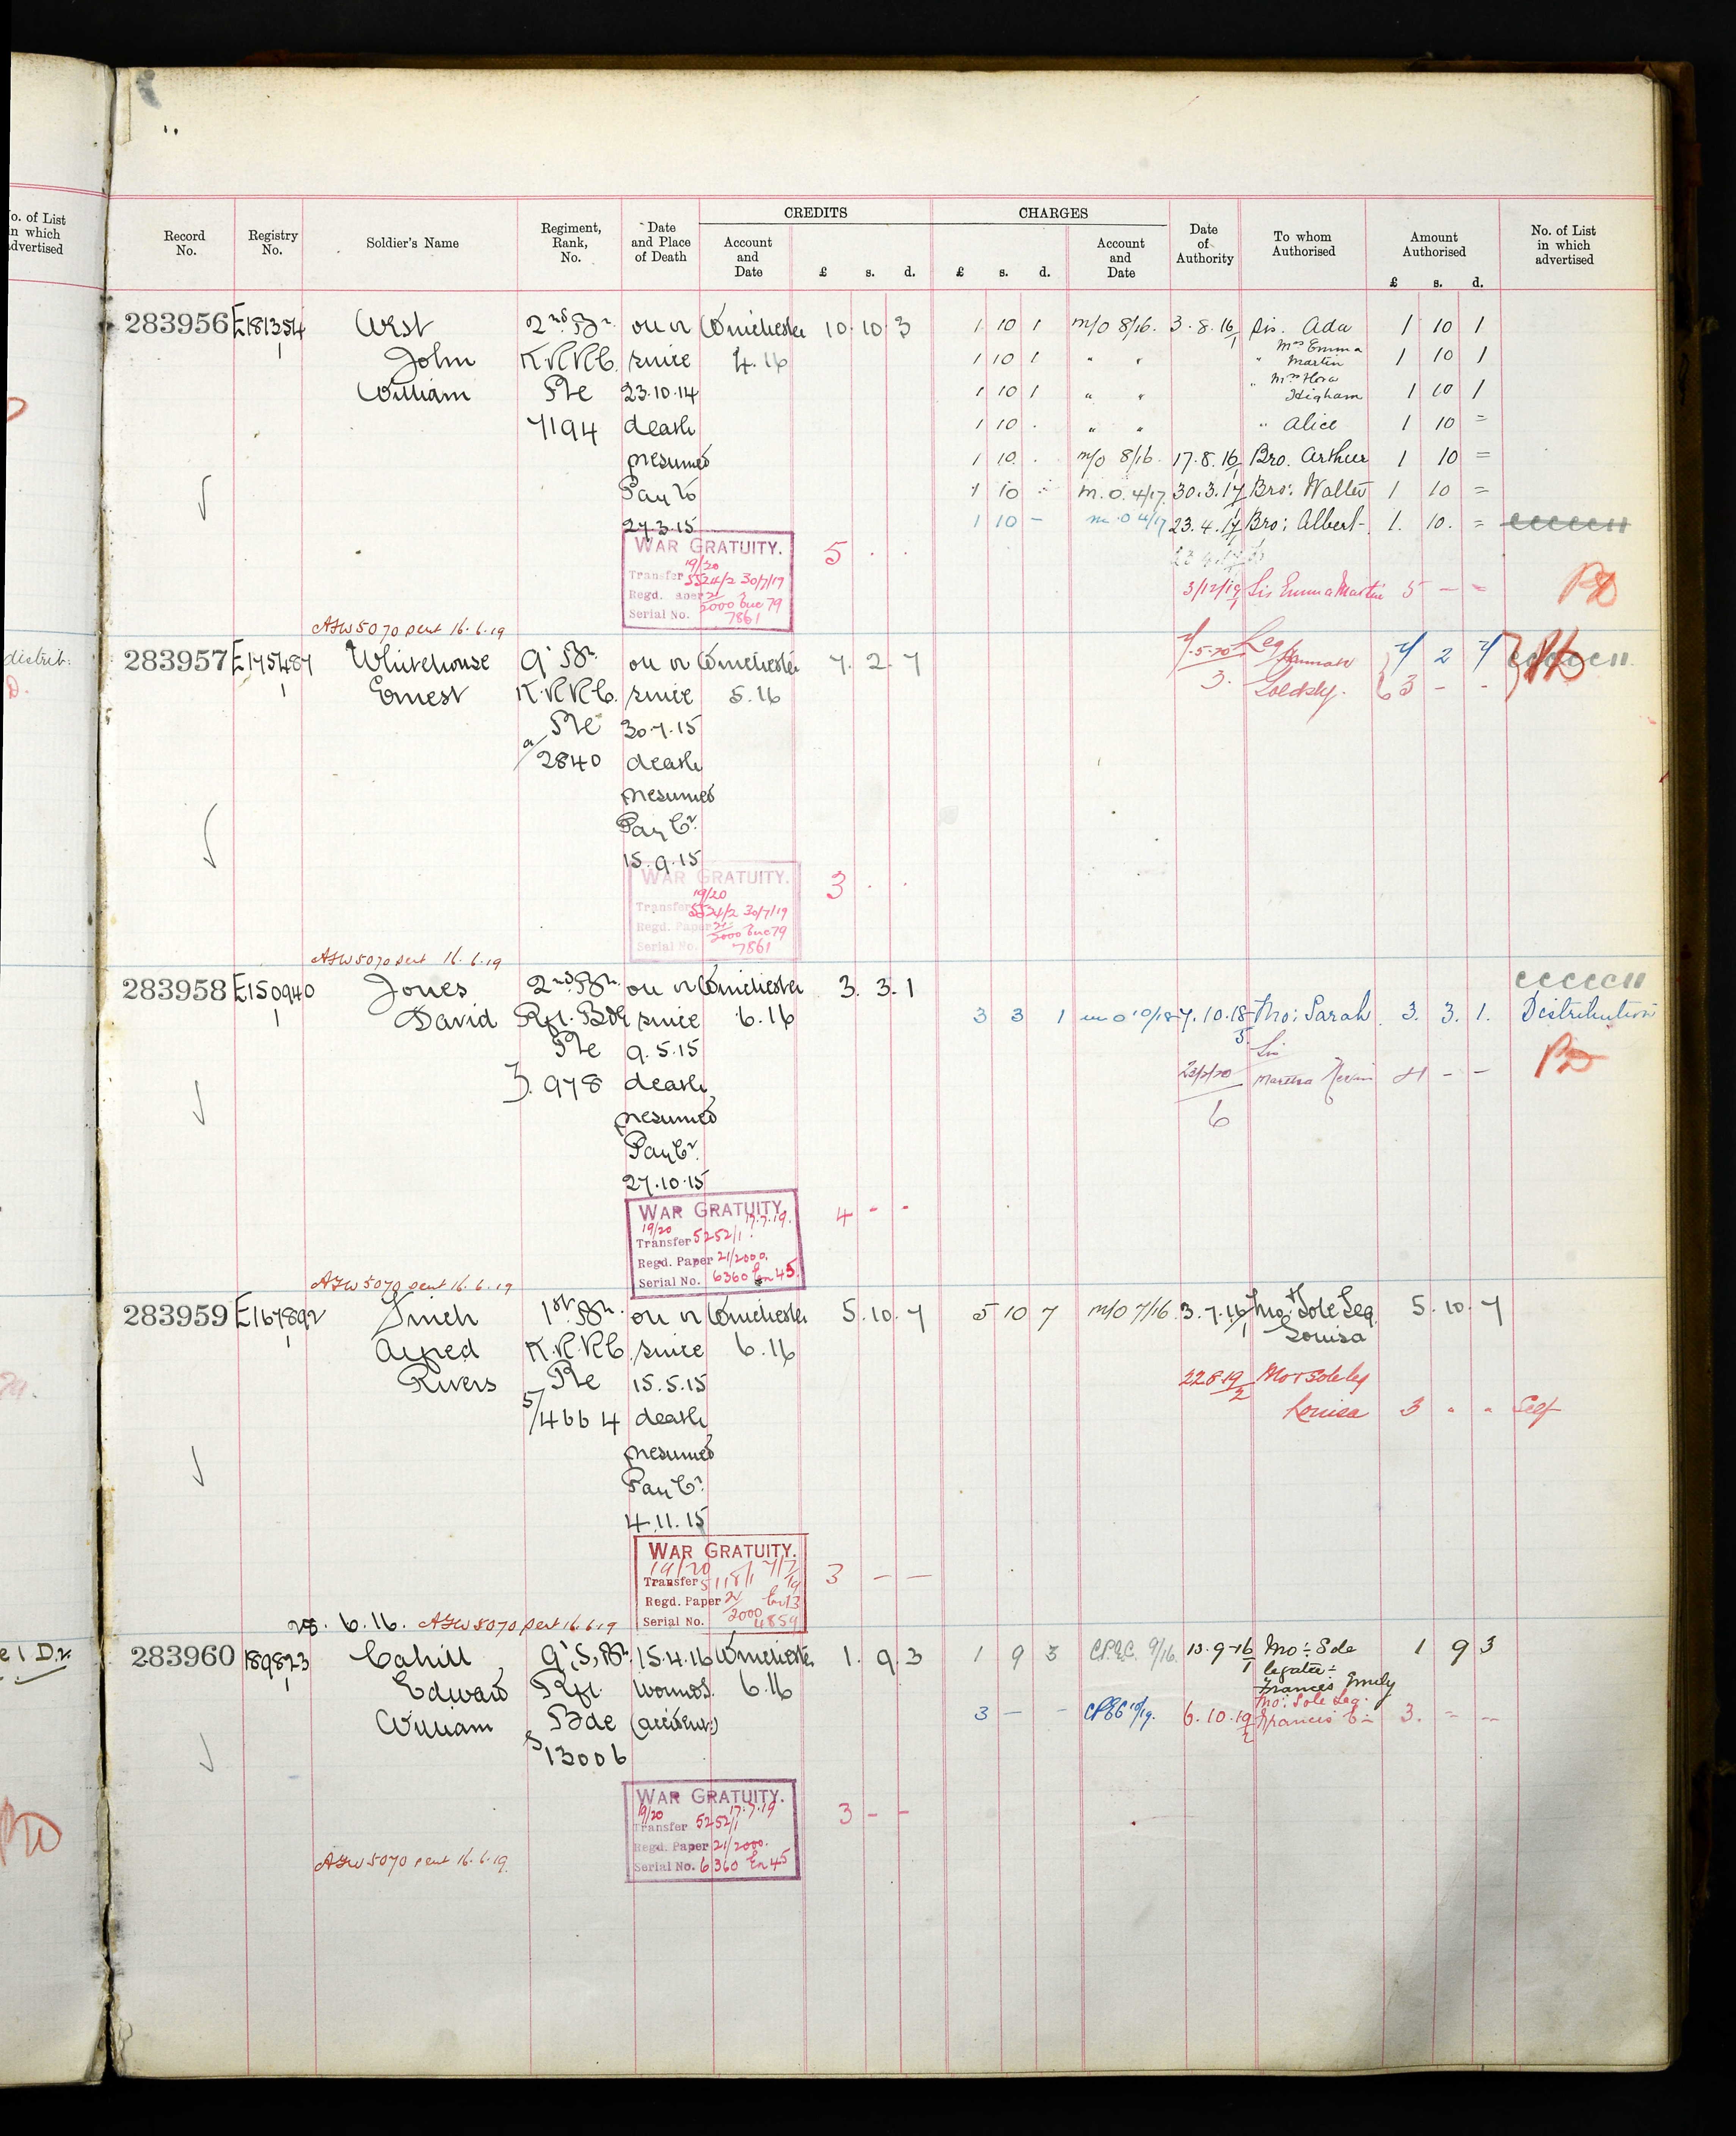 o. of List
in which
advertised
distrib:
e 1 Dr.
CREDITS CHARGES
Record No. Registry No. Soldier's Name Regiment, Rank, No. Date and Place of Death Account and Date £ s. d. £ s. d. Account and Date Date of Authority To whom Authorised Amount Authorised £ s. d. No. of List in which advertised
283956 E181354/1 West 2nd Bn. on or Winchester 10. 10. 3 1 10 1 m/o 8/16. 3.8.16/1 Sis. Ada 1 10 1
John K.R.R.C. since 4.16 1 10 1 " " " Mrs Emma Martin 1 10 1
William Pte 23.10.14 1 10 1 " " " Mrs Flora Higham 1 10 1
7194 death 1 10 . " " " Alice 1 10 =
presumed 1 10 . m/o 8/16. 17.8.16 Bro. Arthur 1 10 =
Pay to 1 10 - m.o. 4/17 30.3.17 Bro: Walter 1 10 =
27.3.15 1 10 - m.o 4/17 23.4.17 Bro: Albert 1. 10. =
WAR GRATUITY. 5 . .
19/20
Transfer 5524/2 30/7/19 3/12/19/1 Sis Emma Martin 5 - =
Regd. Paper 21/2000 Enc 79
Serial No. 7861
AFW5070 sent 16.6.19
283957 E175487/1 Whitehouse 9' Bn. on or Winchester 7. 2. 7 7.5.20/3. Leg Hannah 7 2 7
Ernest K.R.R.C. since 5.16 Goldsby. 3 - -
Pte 30.7.15
a/2840 death
presumed
Pay Cr.
15.9.15
WAR GRATUITY. 3 . .
19/20
Transfer 5524/2 30/7/19
Regd. Paper 21/2000 Enc 79
Serial No. 7861
AFW5070 sent 16.6.19
283958 E150940/1 Jones 2nd Bn. on or Winchester 3. 3. 1
David Rfl. Bde since 6.16 3 3 1 m o 10/18 7.10.18/5 Mo: Sarah 3. 3. 1. Distribution
Pte 9.5.15 Sis
3. 978 death 23/2/20/6 Martha 4 - -
presumed
Pay Cr.
27.10.15
WAR GRATUITY 4 - -
19/20 17.7.19.
Transfer 5252/1
Regd. Paper 21/2000.
Serial No. 6360 En 45.
AFW5070 sent 16.6.19
283959 E167892/1 Finch 1st Bn. on or Winchester 5. 10. 7 5 10 7 m/o 7/16 3.7.16/1 Mo: & Sole Leg. Louisa 5. 10. 7
Alfred K.R.R.C. since 6.16
Rivers Pte 15.5.15 22 8 19/2 Mo & sole leg
5/4664 death Louisa 3 " " Self
presumed
Pay Cr.
4.11.15
WAR GRATUITY. 3 - -
19/20
Transfer 5118/1 7/7/19
Regd. Paper 21/2000 En 13
Serial No. 4859
28. 6.16. AFW5070 sent 16.6.19
283960 189823/1 Cahill 9' S, Bn. 15.4.16 Winchester 1. 9. 3 1 9 3 C.P.E.C. 9/16. 13.9.16/1 Mo: Sole legatee: Frances Emily 1 9 3
Edward Rfl. wounds. 6.16
William Bde (accident:) 3 - - CPEC 10/19. 6.10.19/2 Mo: Sole Leg. Frances E: 3. = -
S/13006
WAR GRATUITY. 3 - -
19/20 17.7.19
Transfer 5252/1
Regd. Paper 21/2000.
Serial No. 6360 En 45
AFW5070 sent 16.6.19.